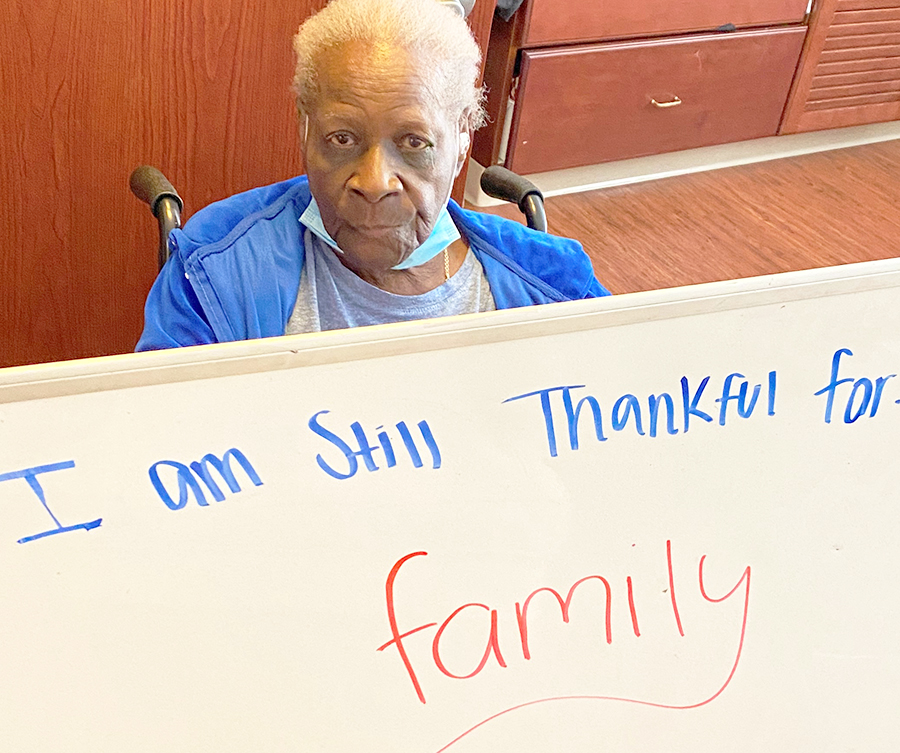 I am Still Thankful for
family